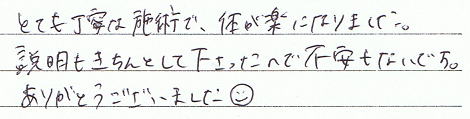 とても丁寧な施術で、体が楽になりました。
説明もきちんとして下さったので不安もないです。
ありがとうございました☺